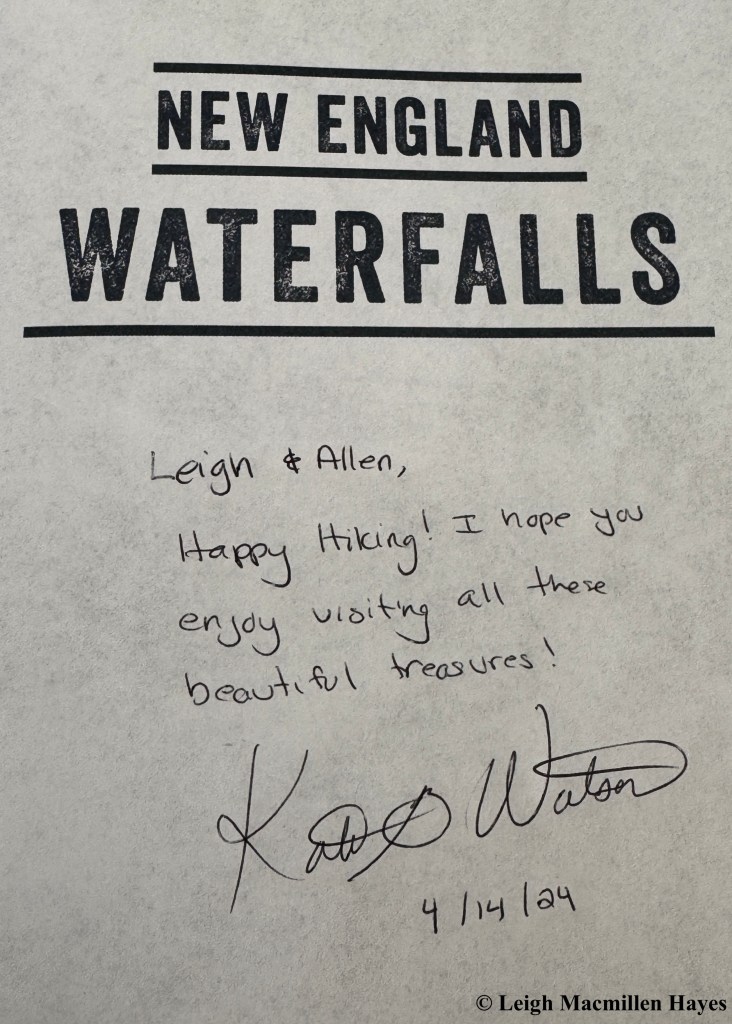 NEW ENGLAND
WATERFALLS
Leigh & Allen,
Happy Hiking! I hope you
enjoy visiting all these
beautiful treasures!
Watson
4/14/24
© Leigh Macmillen Hayes